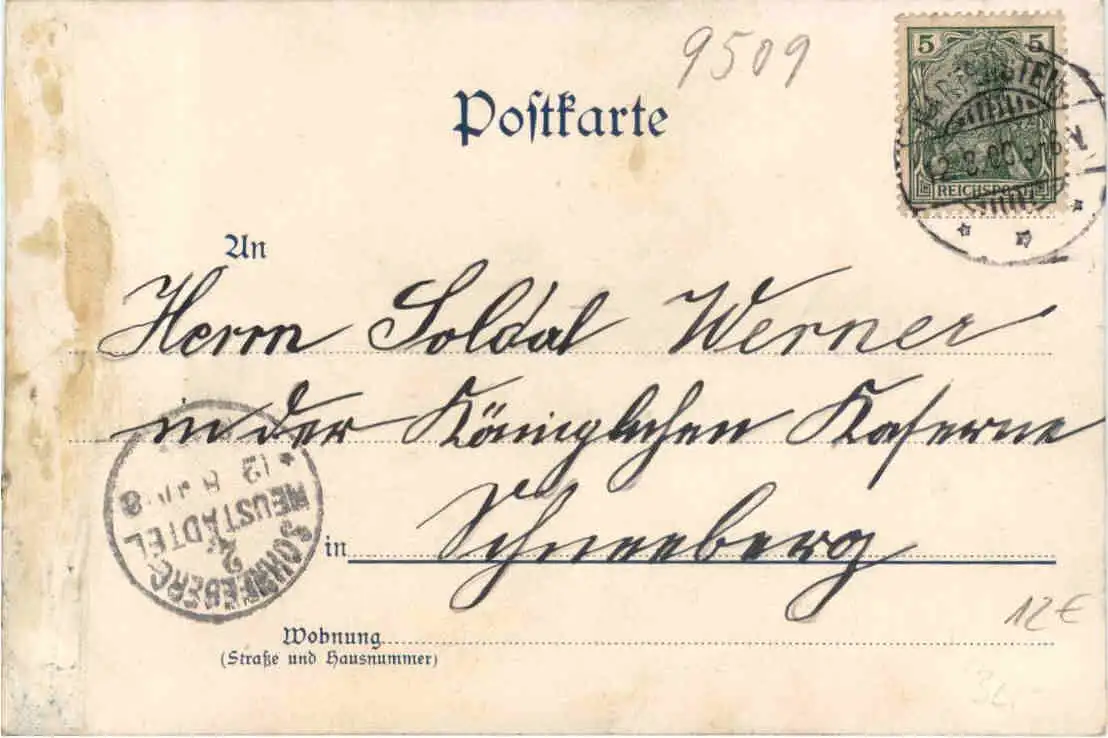 9509
5 5
REICHSPOST
12.8.00.5-6N
Postkarte
An
Herrn Soldat Werner
in der Königlichen Kaserne
in Schneeberg
SCHNEEBERG
NEUSTÄDTEL
2
12 8
8
Wohnung
(Straße und Hausnummer)
12 €